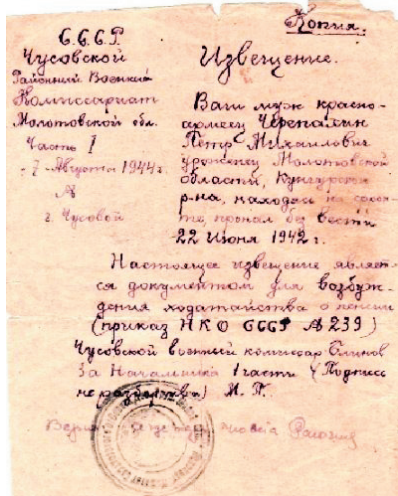 Копия.
С.С.С.Р.
Чусовской
Районный Военный
Комиссариат
Молотовской обл.
Часть I
-7- Августа 1944 г.
№
г. Чусовой
Извещение.
Ваш муж красно-
армеец
Петр Михайлович
уроженец Молотовской
области, Кунгурского
р-на, находясь на фрон-
те, пропал без вести
22 Июня 1942 г.
Настоящее извещение являет-
ся документом для возбуж-
дения ходатайства о пенсии
(приказ НКО СССР № 239)
Чусовской военный комиссар Блинов
За Начальника 1 части (Подпись
не разборчива) М. П.